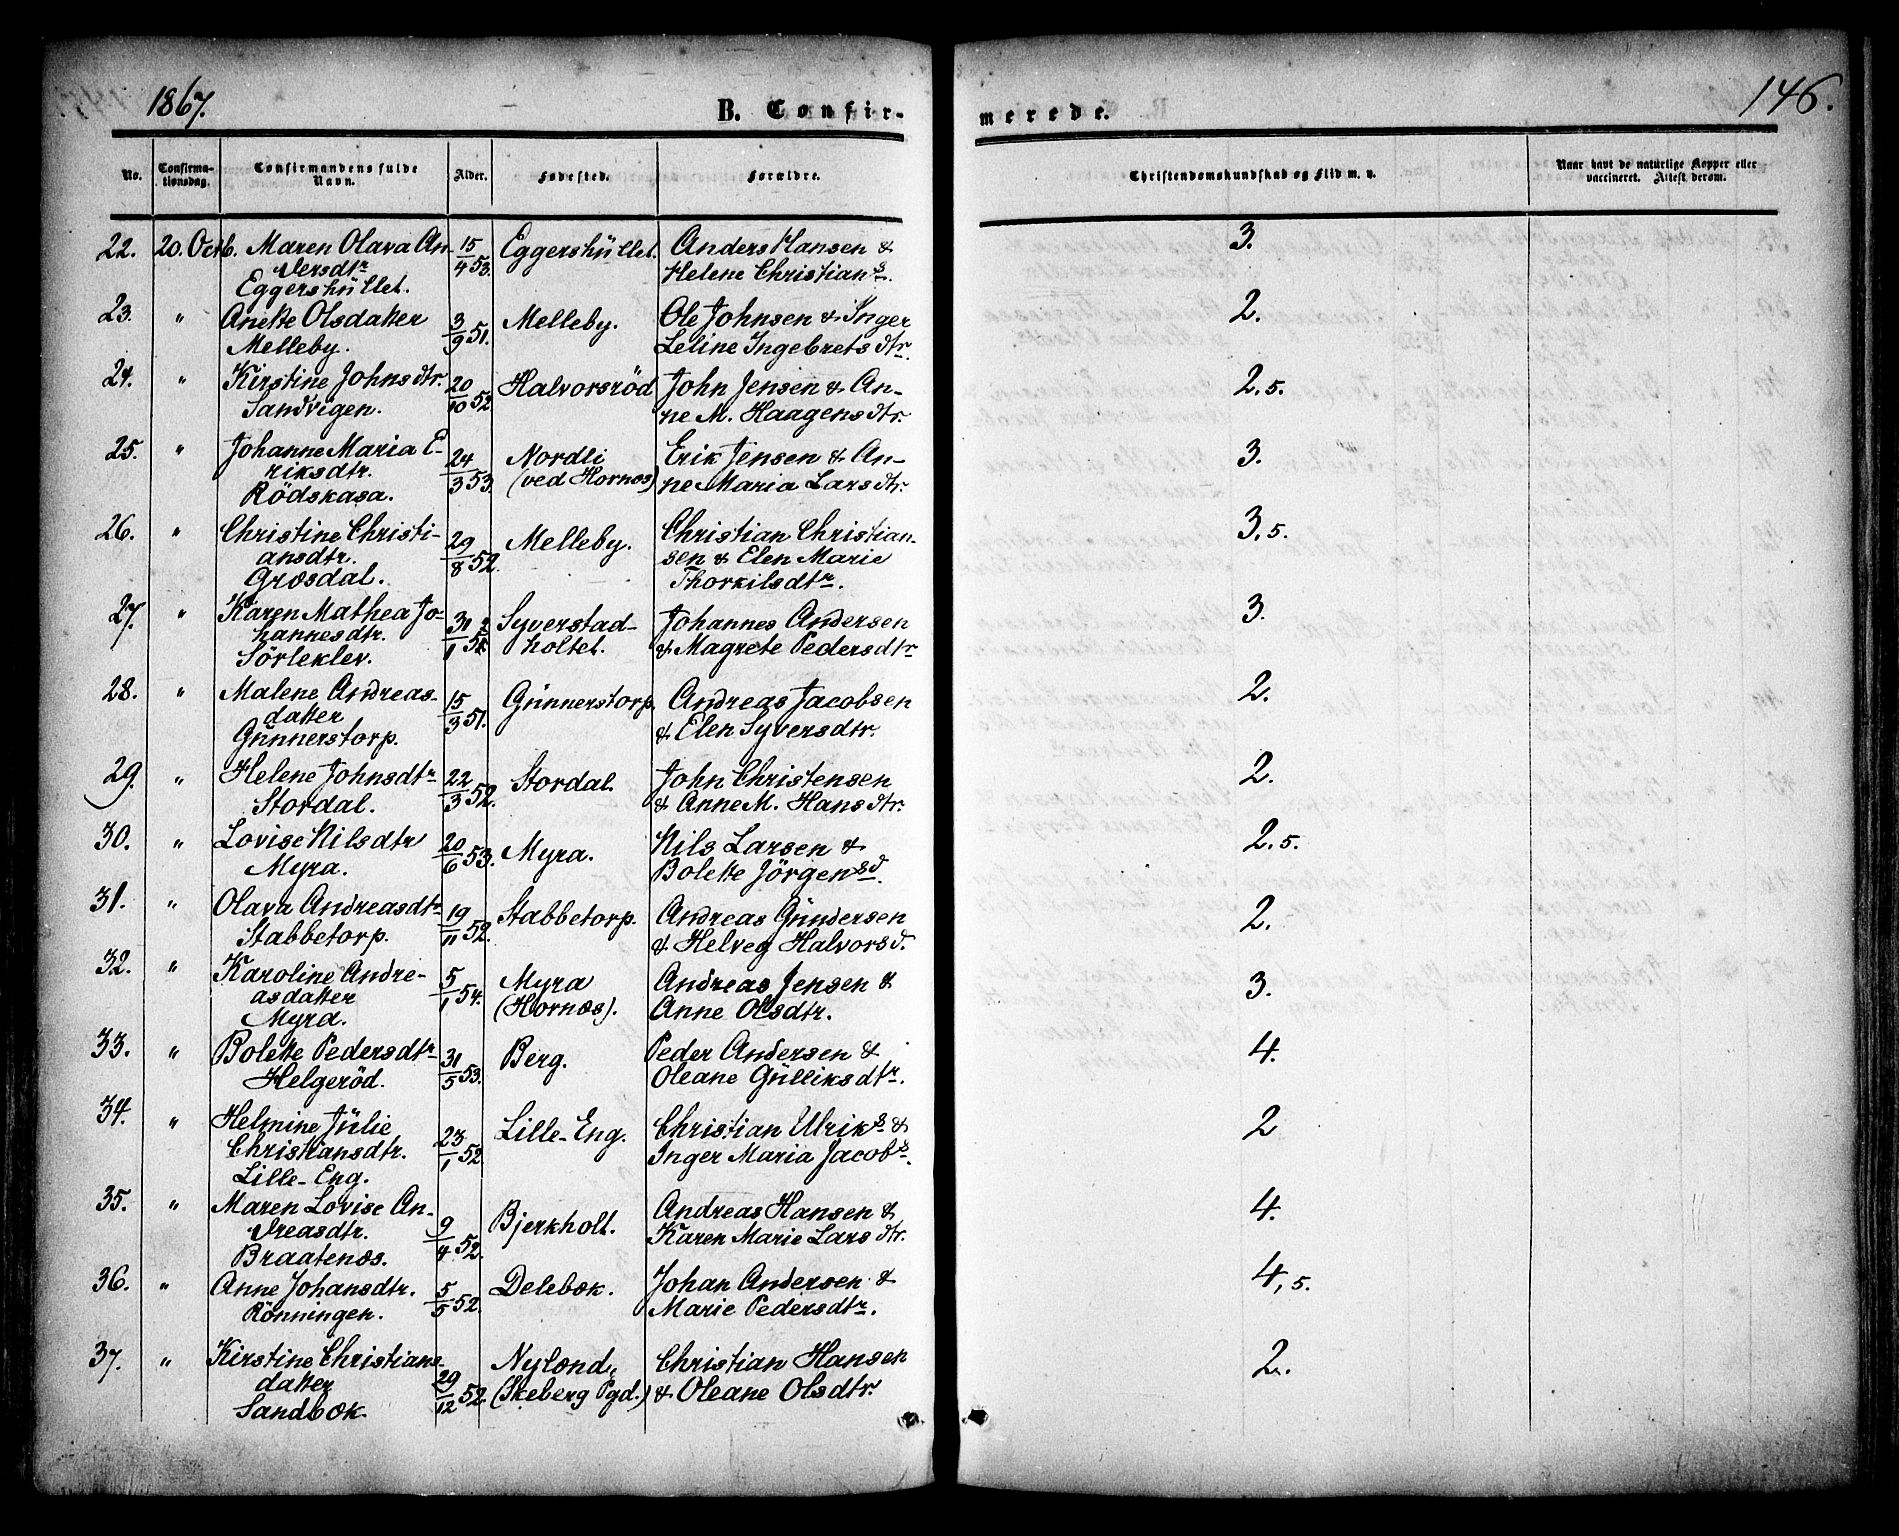 1867.
B. Confir-
merede.
146.
No.
Confirma-
tionsdag.
Confirmandens fulde
Navn.
Alder.
Fødested.
Forældre.
Christendomskundskab og Flid m. v.
Naar havt de naturlige Kopper eller
vaccineret. Attest derom.
22. 20. Octb. Maren Olava An- 15/4 53. Eggershüllet. Anders Hansen & 3.
dersdtr Helene Christians.
Eggershüllet.
23. " Anette Olsdatter 3/9 51. Melleby. Ole Johnsen & Inger 2.
Melleby. Leline Ingebretsdtr.
24. " Kirstine Johnsdtr. 20/10 52 Halvorsröd John Jensen & An- 2,5.
Sandvigen. ne M. Haagensdtr.
25. " Johanne Maria E- 24/3 53. Nordli Erik Jensen & An- 3.
riksdtr. (ved Hornæs) ne Maria Larsdtr.
Rödskasa.
26. " Christine Christi- 29/8 52. Melleby. Christian Christian- 3,5.
ansdtr. sen & Elen Marie
Grosdal. Thorkilsdtr.
27. " Karen Mathea Jo- 31/1 52. Syverstad- Johannes Andersen 3.
hannesdtr. holtet. & Magrete Pedersdtr
Sörleklev.
28. " Malene Andreas- 15/3 51. Günnerstorp. Andreas Jacobsen 2.
datter & Elen Syversdtr.
Günnerstorp.
29. " Helene Johnsdtr 22/3 52. Stordal. John Christensen 2.
Stordal. & Anne M. Hansdtr.
30. " Lovise Nilsdtr 20/6 53. Myra. Nils Larsen & 2,5.
Myra. Bolette Jörgensd.
31. " Olava Andreasdtr 19/11 52. Stabbetorp. Andreas Gündersen 2.
Stabbetorp. & Helveg Halvorsd.
32. " Karoline Andre- 5/1 54. Myra Andreas Jensen & 3.
asdatter (Hornæs). Anne Olsdtr.
Myra.
33. " Bolette Pedersdtr 31/5 53. Berg. Peder Andersen & 4.
Helgeröd. Oleane Gülliksdtr.
34. " Helmine Jülie 23/1 52 Lille-Eng. Christian Ulriks & 2
Christiansdtr. Inger Maria Jacobs.
Lille-Eng.
35. " Maren Lovise An- 9/4 52. Bjerkholt. Andreas Hansen & 4.
dreasdtr. Karen Marie Larsdtr.
Braatenæs.
36. " Anne Johansdtr. 5/5 52. Delebæk. Johan Andersen & 4,5.
Rönningen. Marie Pedersdtr.
37. " Kirstine Christians- 29/12 52 Nylænd, Christian Hansen 2.
datter (Skeberg Pgd.) & Oleane Olsdtr.
Sandbæk.